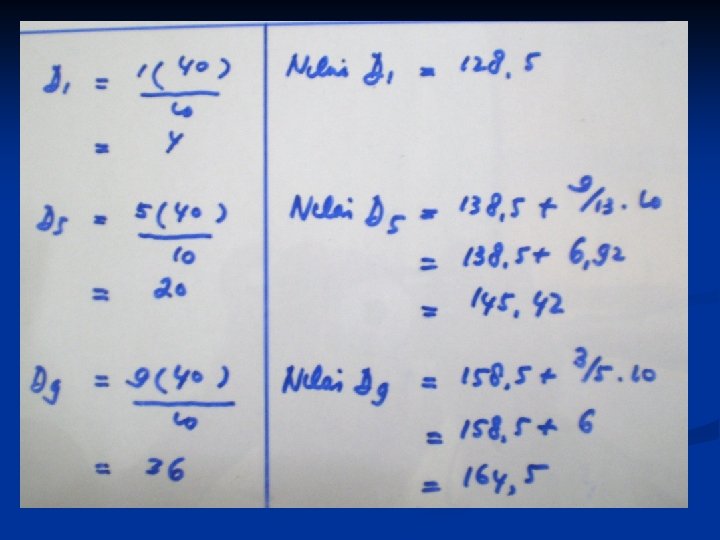 D₁ = 1(40)
10
= 4
D₅ = 5(40)
10
= 20
D₉ = 9(40)
10
= 36
Nilai D₁ = 128,5
Nilai D₅ = 138,5 + 9/13 . 10
= 138,5 + 6,92
= 145,42
Nilai D₉ = 158,5 + 3/5 . 10
= 158,5 + 6
= 164,5